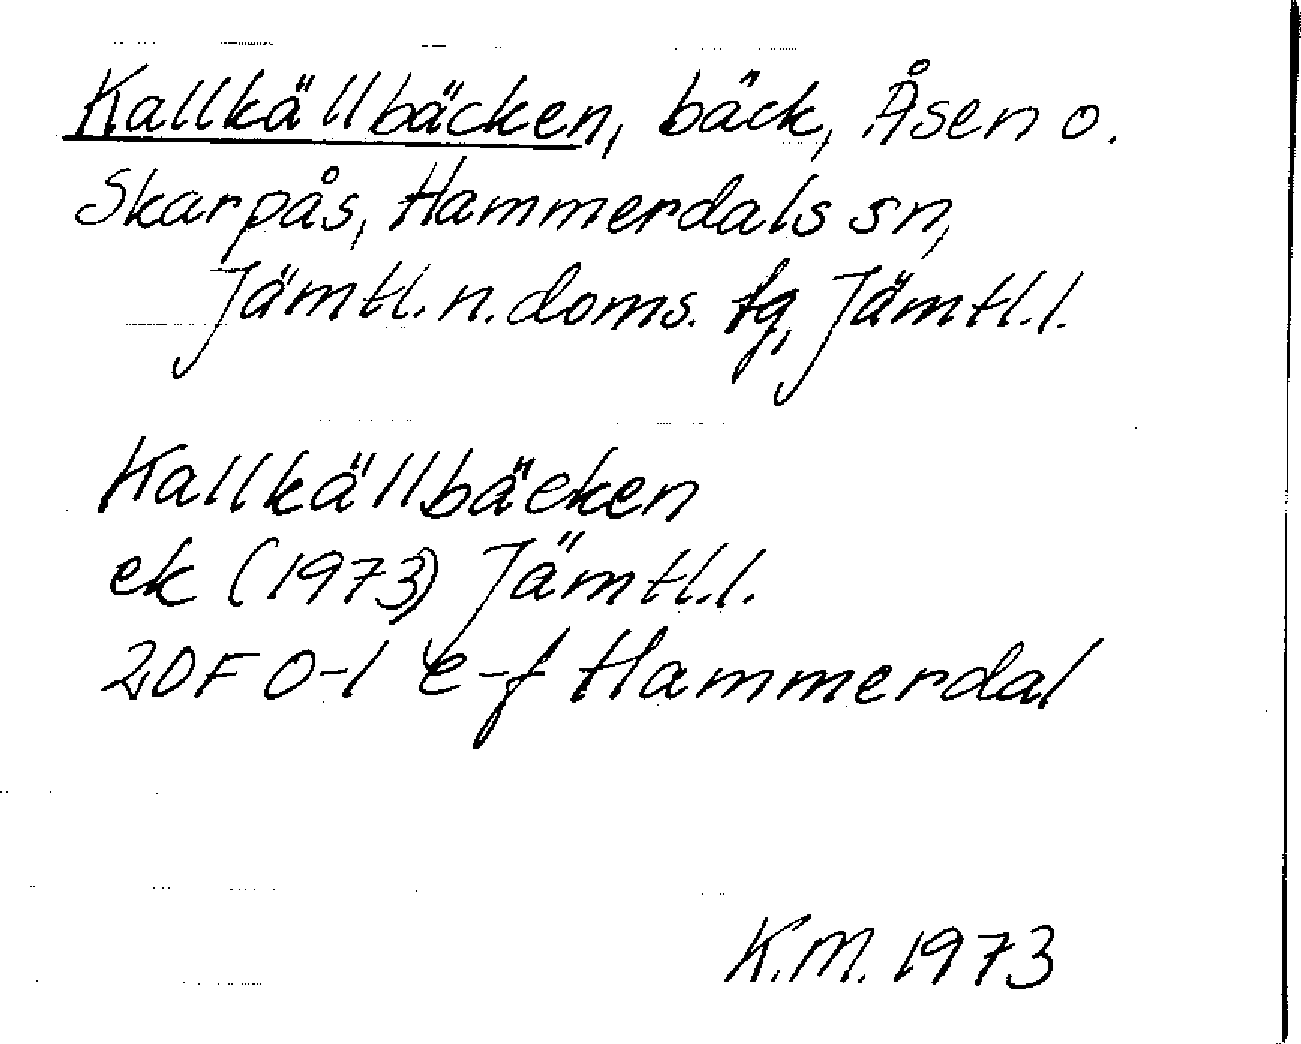 Kallkällbäcken, bäck, Åsen o.
Skarpås, Hammerdals sn,
Jämtl. n. doms. tg, Jämtl. l.
Kallkällbäcken
ek (1973) Jämtl. l.
20F 0-1 e-f Hammerdal
K.M. 1973